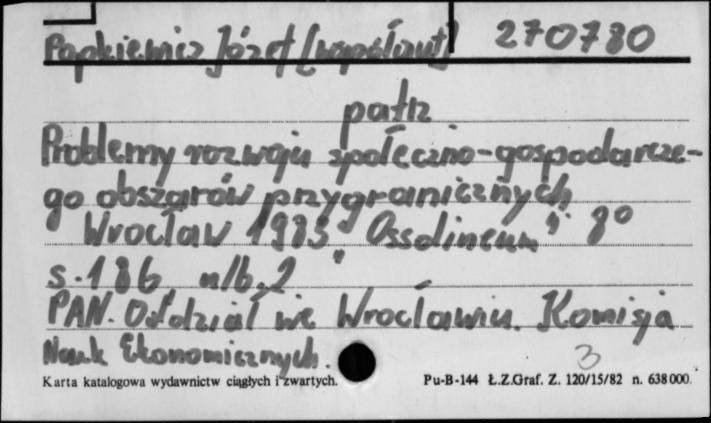 Popkiewicz Józef [współaut] 270780
patrz
Problemy rozwoju społeczno-gospodarcze-
go obszarów przygranicznych
Wrocław 1983 "Ossolineum" 8°
s. 186, nlb. 2
PAN. Oddział we Wrocławiu. Komisja
Nauk Ekonomicznych.
3
Karta katalogowa wydawnictw ciągłych i zwartych. Pu-B-144 Ł.Z.Graf. Z. 120/15/82 n. 638000.